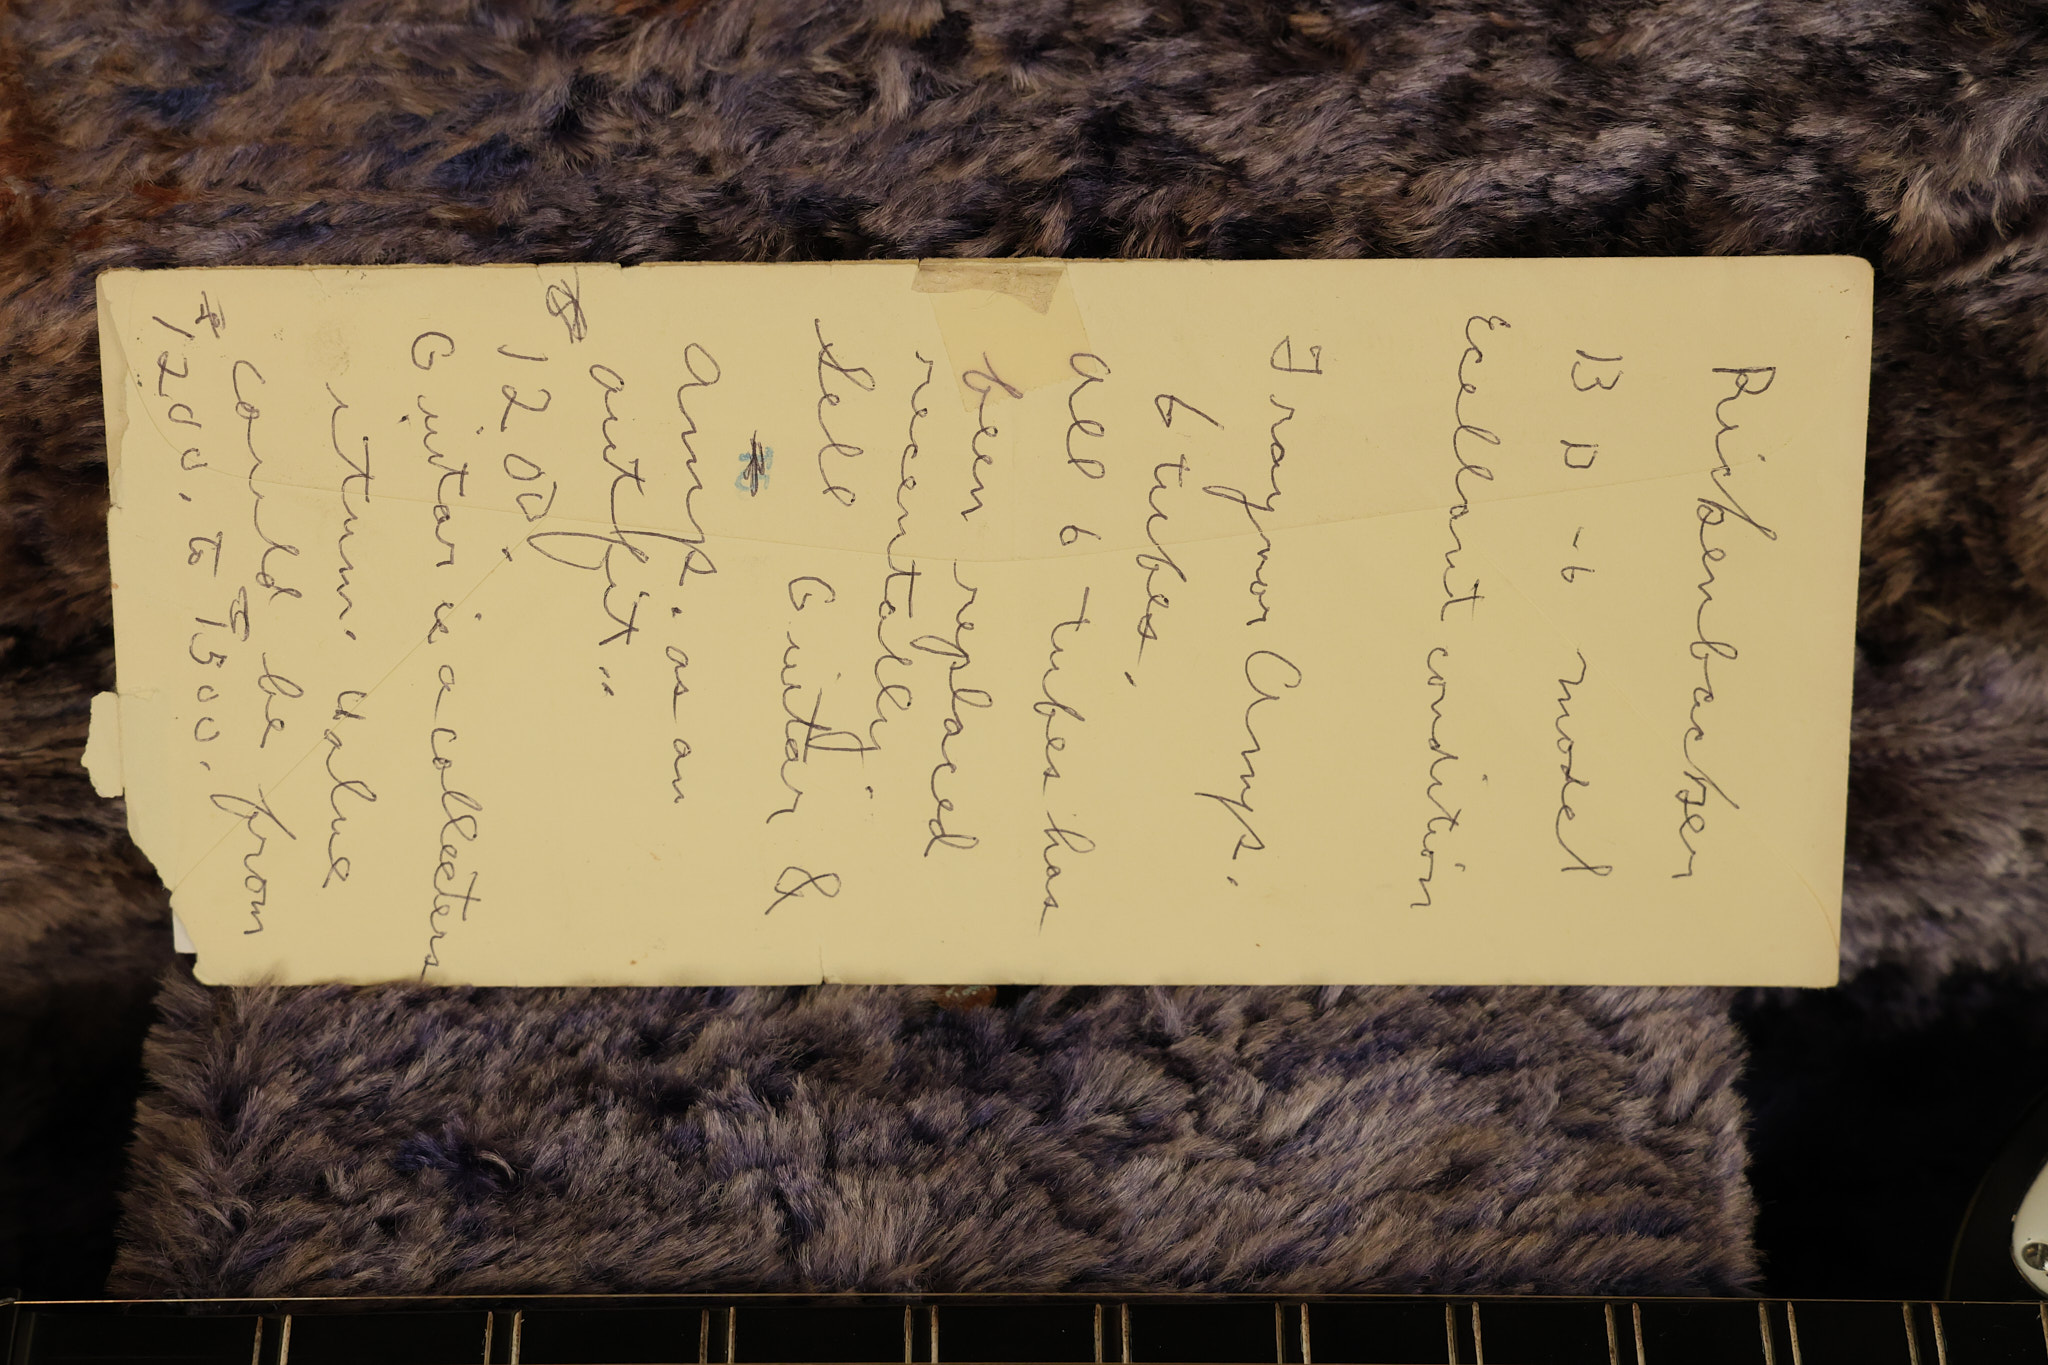 Rickenbacker
B D - 6 model
Ecellant condition
Traynor Amp.
6 tubes.
all 6 tubes has
been replaced
recentally.
Sell Guitar &
Amp. as an
outfit..
$1200.
Guitar is a collecters
itum. Value
could be from
$1,200. to $1500.